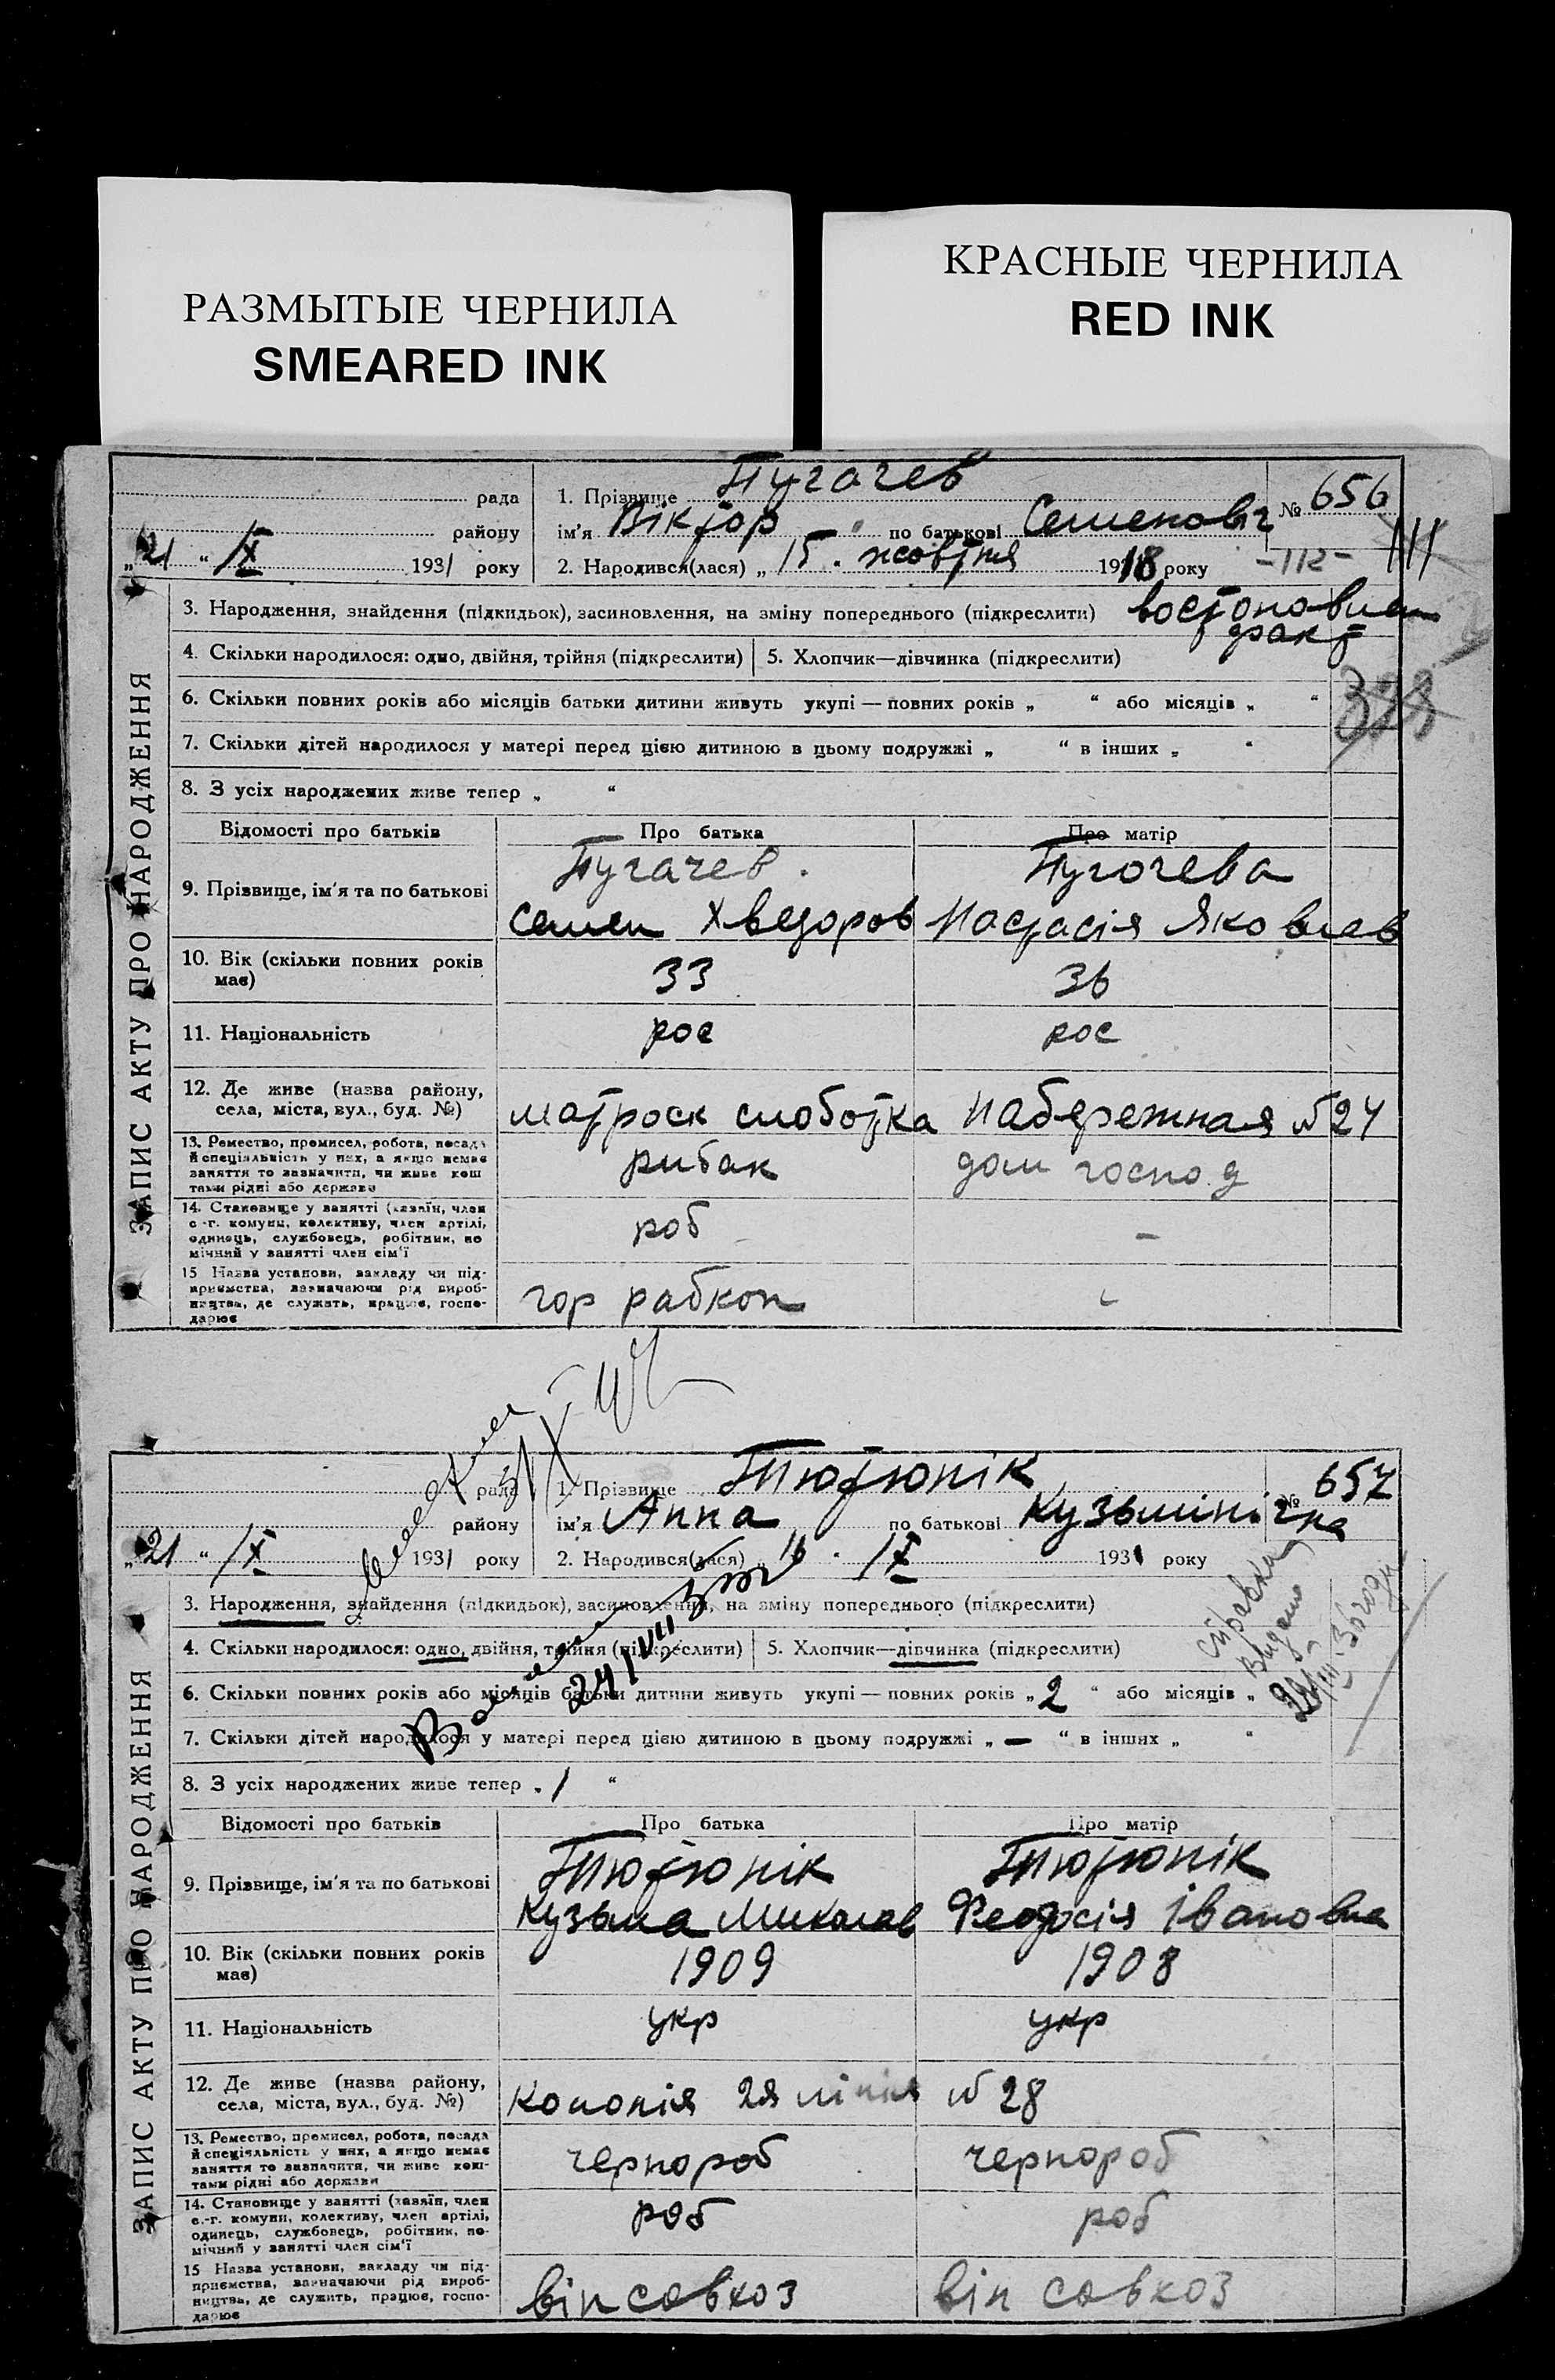 РАЗМЫТЫЕ ЧЕРНИЛА
SMEARED INK
КРАСНЫЕ ЧЕРНИЛА
RED INK
ЗАПИС АКТУ ПРО НАРОДЖЕННЯ
рада
району
„21“ IX 1931 року
1. Прізвище Пугачев
ім'я Віктор по батькові Семенович
№ 656
2. Народився(лася) „15. жовтня 1918 року
-112-
3. Народження, знайдення (підкидьок), засиновлення, на зміну попереднього (підкреслити) востоновлен
факт
4. Скільки народилося: одно, двійня, трійня (підкреслити) 5. Хлопчик—дівчинка (підкреслити)
6. Скільки повних років або місяців батьки дитини живуть укупі — повних років „ “ або місяців „ “
7. Скільки дітей народилося у матері перед цією дитиною в цьому подружжі „ “ в інших „ “
8. З усіх народжених живе тепер „ “
Відомості про батьків Про батька Про матір
9. Прізвище, ім'я та по батькові Пугачев Пугочева
Семен Хведоров Настасія Яковлев
10. Вік (скільки повних років має) 33 36
11. Національність рос рос
12. Де живе (назва району, села, міста, вул., буд. №) матроск слоботка Набережная № 24
13. Ремество, промисел, робота, посада
й спеціяльність у них, а якщо немає
заняття то зазначити, чи живе кош
тами рідні або держави
рибак дом господ
14. Становище у занятті (хазяїн, член
с.-г. комуни, колективу, член артілі,
одинець, службовець, робітник, по
мічний у занятті член сім'ї
роб -
15 Назва установи, закладу чи під-
приємства, зазначаючи рід вироб-
ництва, де служить, працює, госпо-
дарює
гор рабкоп -
ЗАПИС АКТУ ПРО НАРОДЖЕННЯ
рада
району
„21“ IX 1931 року
1. Прізвище Тютюнік
ім'я Анна по батькові Кузьминічна
№ 657
2. Народився(лася) „16. IX 1931 року
3. Народження, знайдення (підкидьок), засиновлення, на зміну попереднього (підкреслити)
справка
видано
4. Скільки народилося: одно, двійня, трійня (підкреслити) 5. Хлопчик—дівчинка (підкреслити)
24/VII
6. Скільки повних років або місяців батьки дитини живуть укупі — повних років „2“ або місяців „
7. Скільки дітей народилося у матері перед цією дитиною в цьому подружжі „—“ в інших „ “
8. З усіх народжених живе тепер „1“
Відомості про батьків Про батька Про матір
9. Прізвище, ім'я та по батькові Тютюнік Тютюнік
Кузьма Миколаєв Феодосія Івановна
10. Вік (скільки повних років має) 1909 1908
11. Національність укр укр
12. Де живе (назва району, села, міста, вул., буд. №) Колонія 2я лінія № 28
13. Ремество, промисел, робота, посада
й спеціяльність у них, а якщо немає
заняття то зазначити, чи живе кош-
тами рідні або держави
чернороб чернороб
14. Становище у занятті (хазяїн, член
с.-г. комуни, колективу, член артілі,
одинець, службовець, робітник, по-
мічний у занятті член сім'ї
роб роб
15 Назва установи, закладу чи під-
приємства, зазначаючи рід вироб-
ництва, де служить, працює, госпо-
дарює
він совхоз він совхоз